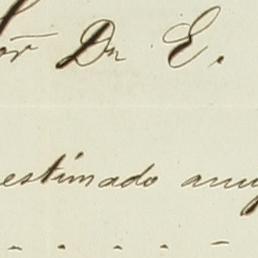 or Dn E.
estimado amig